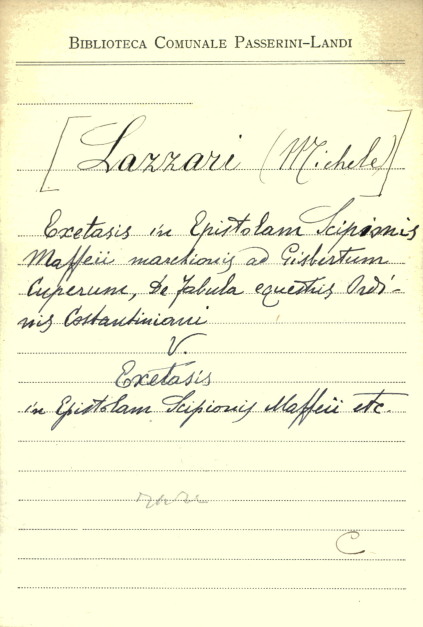 BIBLIOTECA COMUNALE PASSERINI-LANDI
[Lazzari (Michele)]
Exetasis in Epistolam Scipionis
Maffeii marchionis ad Gisbertum
Cuperum, De fabula equestris Ordi-
nis Costantiniani
V.
Exetasis
in Epistolam Scipionis Maffeii etc.
C